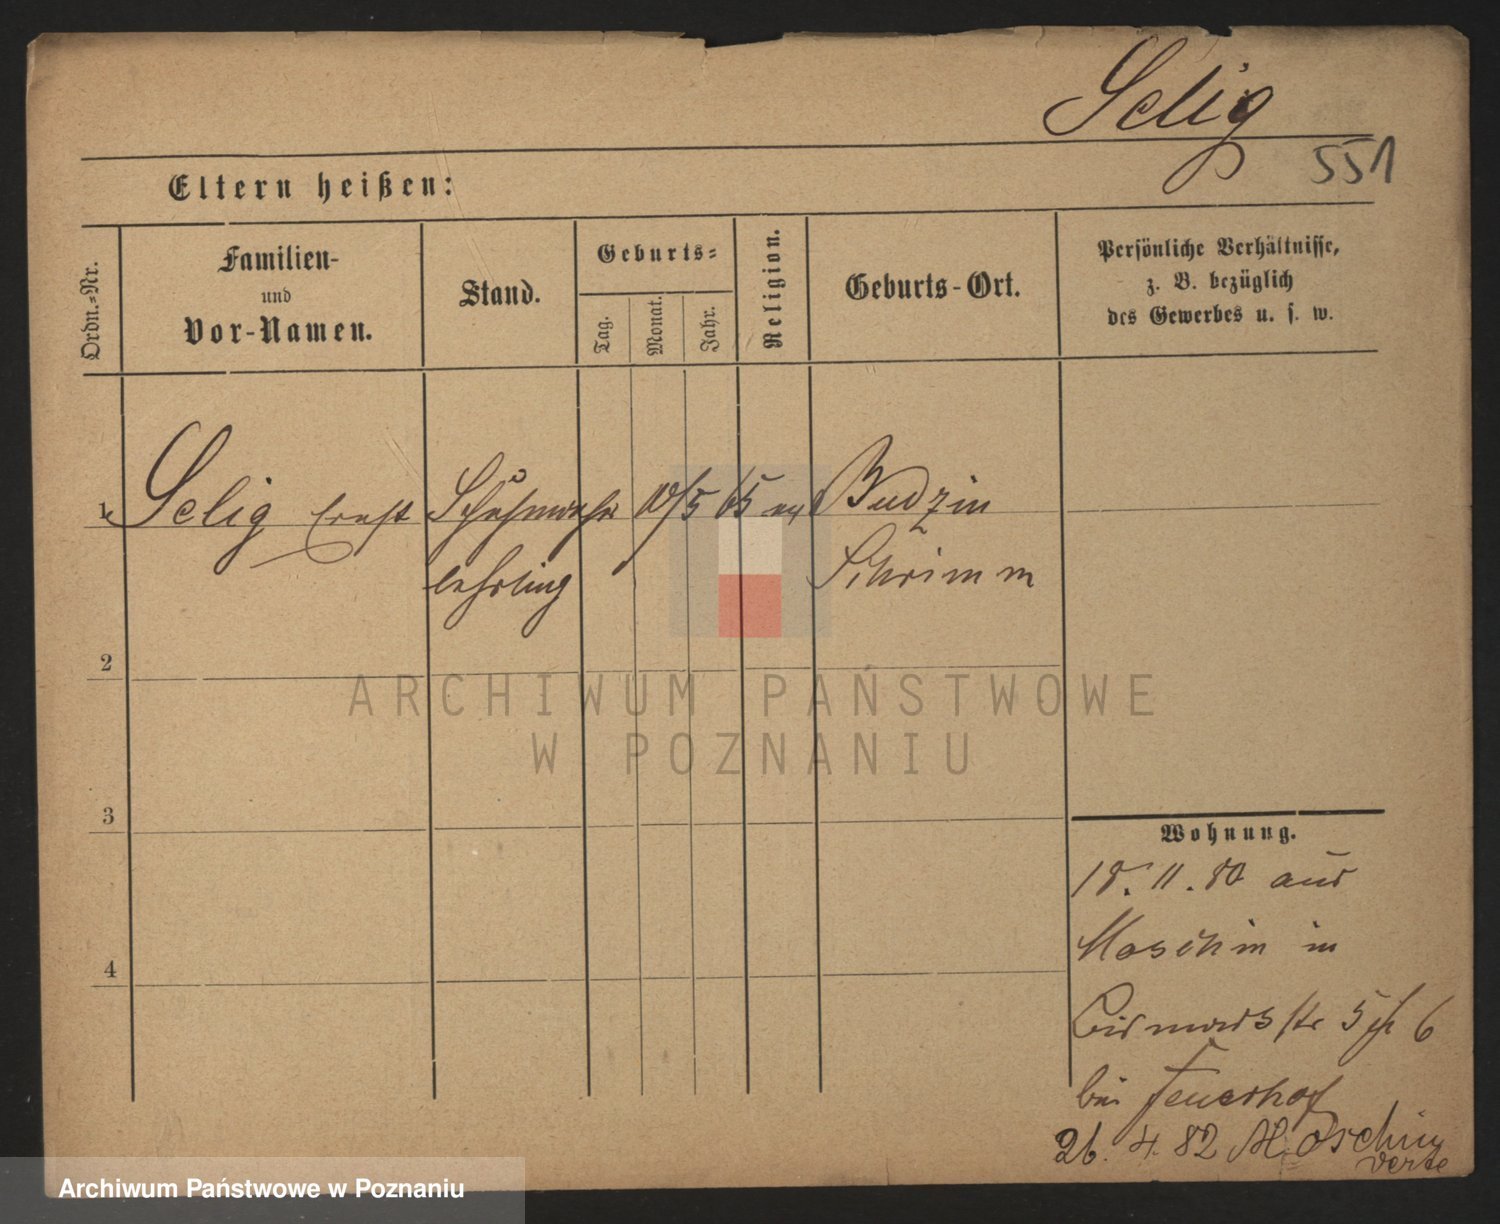 Selig
551
Eltern heißen:
Ordn.-Nr.
Familien-
und
Vor-Namen.
Stand.
Geburts-
Tag.
Monat.
Jahr.
Religion.
Geburts-Ort.
Persönliche Verhältnisse,
z. B. bezüglich
des Gewerbes u. s. w.
1 Selig Ernst 10/5 65 Budzin
lehrling Schrimm
2
ARCHIWUM PAŃSTWOWE
W POZNANIU
3
4
Wohnung.
18. 11. 80 aus
Moschin in
5 6
bei Feuerhof
26. 4. 82 Moschin
verte
Archiwum Państwowe w Poznaniu